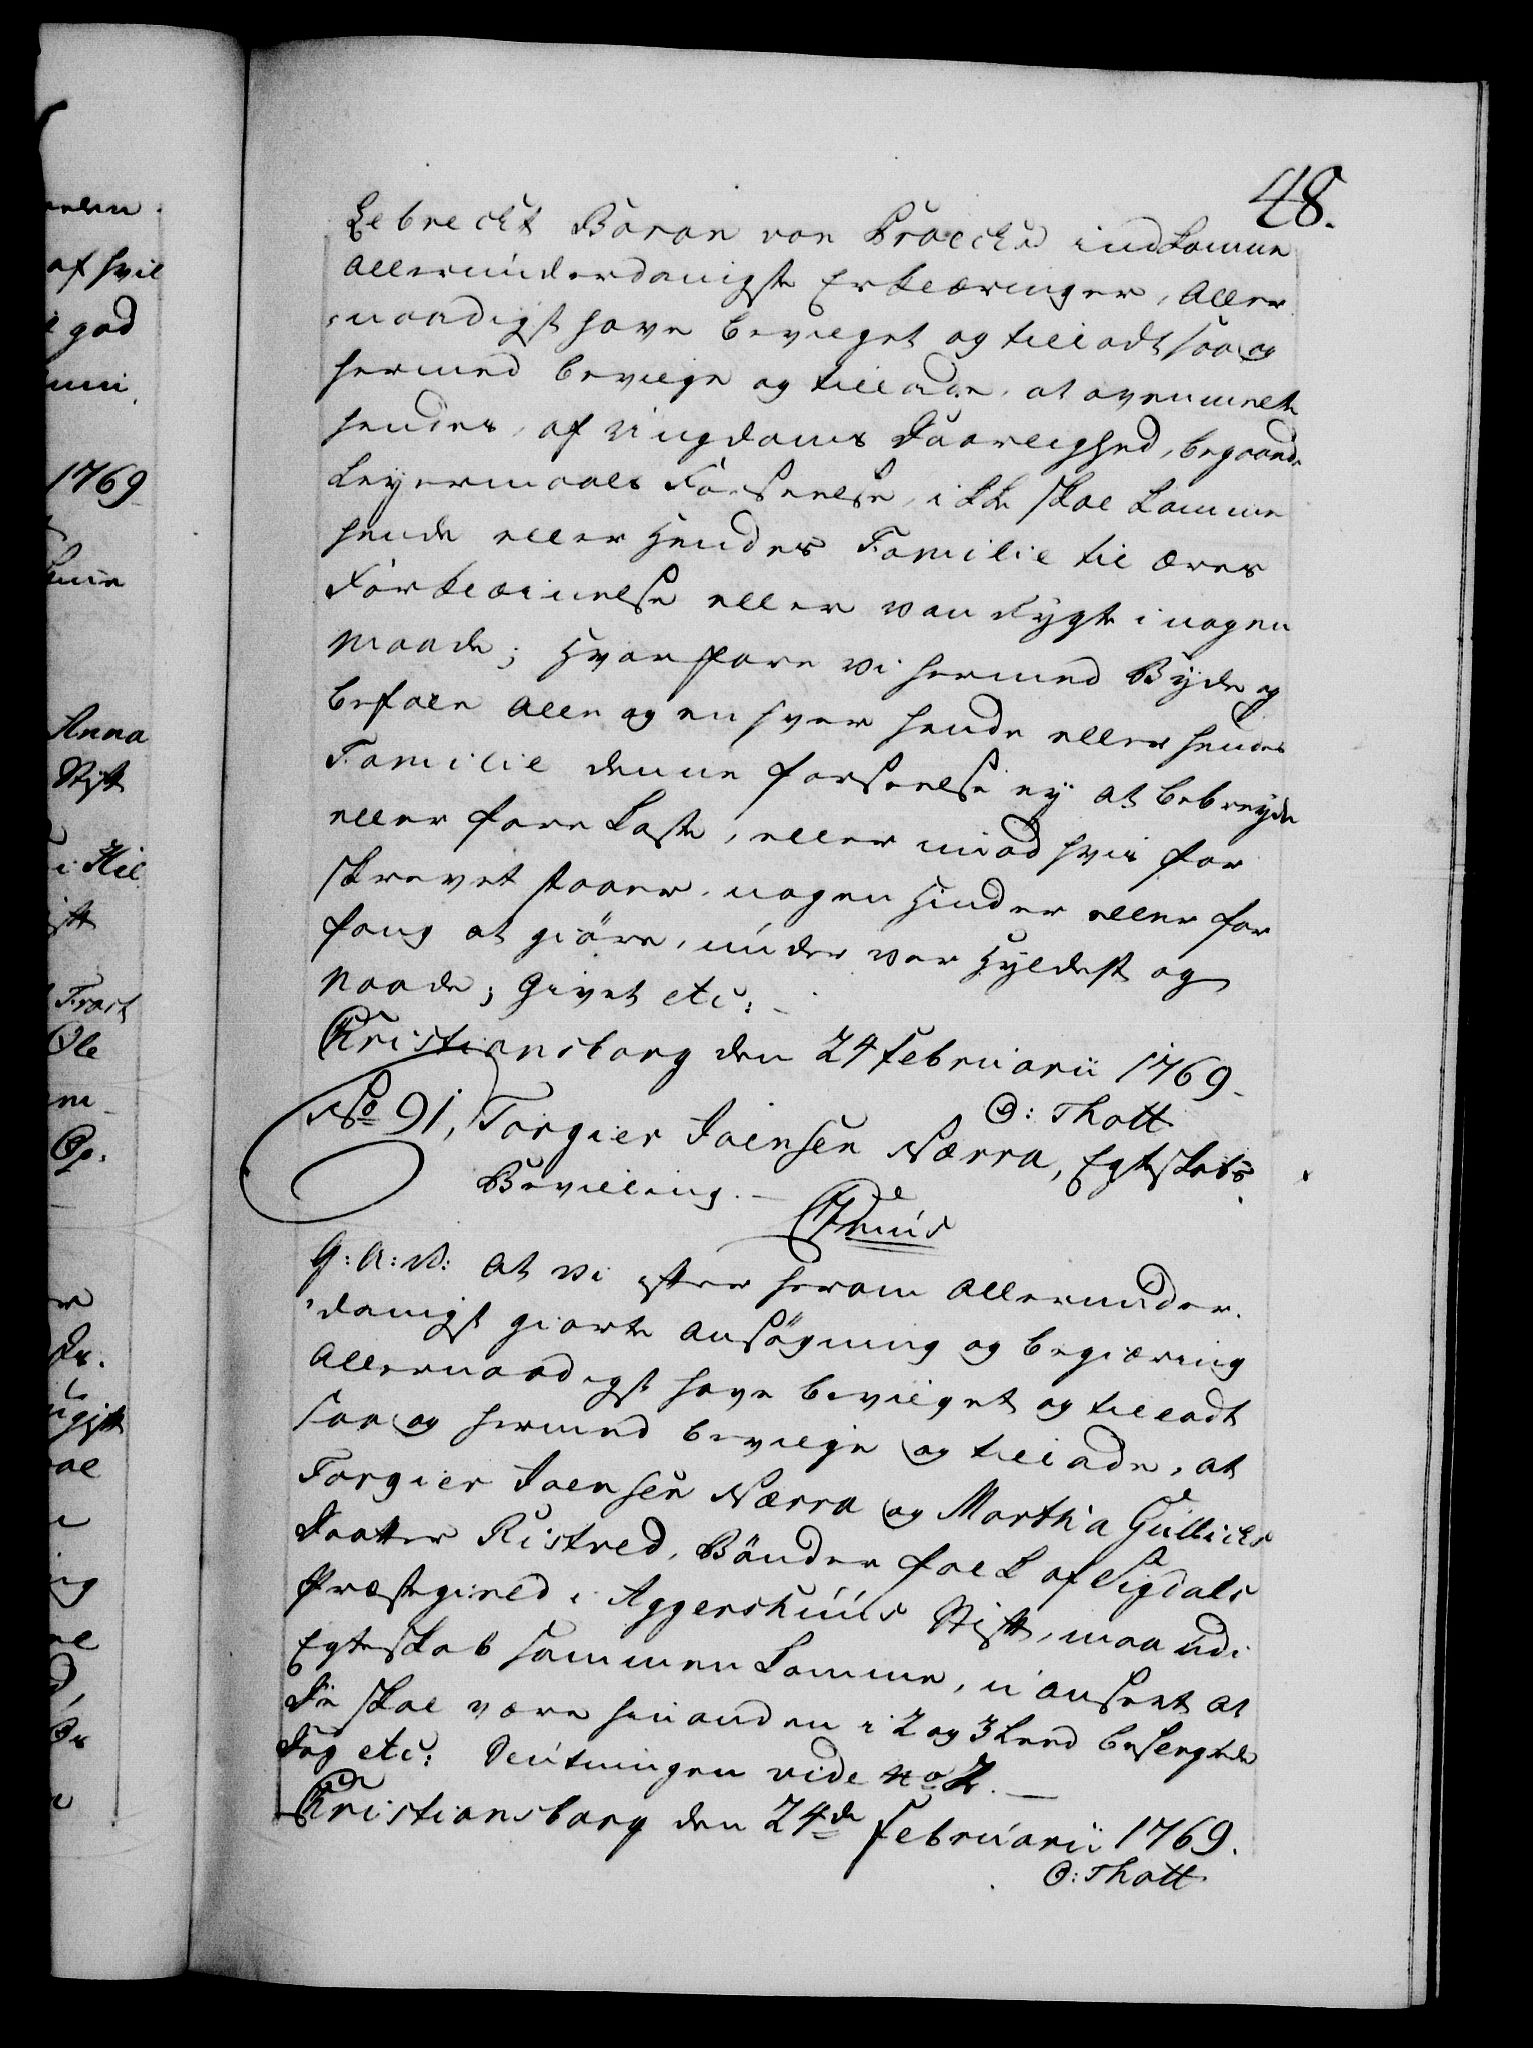 48.
Lebrecht Baron von Proeck's indkomne
allerunderdanigste Erklæringer, Aller-
naadigst have bevilget og tilladt saa og
hermed bevilge og tillade, at ovenmelte
hendes, af Ungdoms Daarlighed, begaaede
Leyermaals Forseelse, ikke skal komme
hende eller hendes Familie til æres
Forkleinelse eller vanrygte i nogen
Maade; Hvorfore vi hermed Byde og
befale alle og enhver hende eller hendes
Familie denne forseelse ey at bebreyde
eller forekaste, eller imod hvis for
skrevet staaer, nogen Hinder eller for
fang at giöre, under vor Hyldest og
Naade; Givet etc:
Christiansborg den 24 Februarii 1769.
O: Thott
No 91, Torgier Joensen Nærra, Egteskabs
Bevilling.
G: A: V: at vi efter herom allerunder-
danigst giorte ansögning og begiæring
Allernaadigst have bevilget og tilladt
saa og hermed bevilge og tillade, at
Torgier Joensen Nærra og Martha Gullichs
Daatter Ristved, Bönder folk af Sigdals
Præstegield i Aggershuus Stift, maa udi
Egteskab sammen komme, uanseet at
De skal være hinanden i 2 og 3 Leed beslegtede
Dog etc: Slutningen vide No 2.
Christiansborg den 24de Februarii 1769.
O: Thott
1769
Anna
Stift
Ole